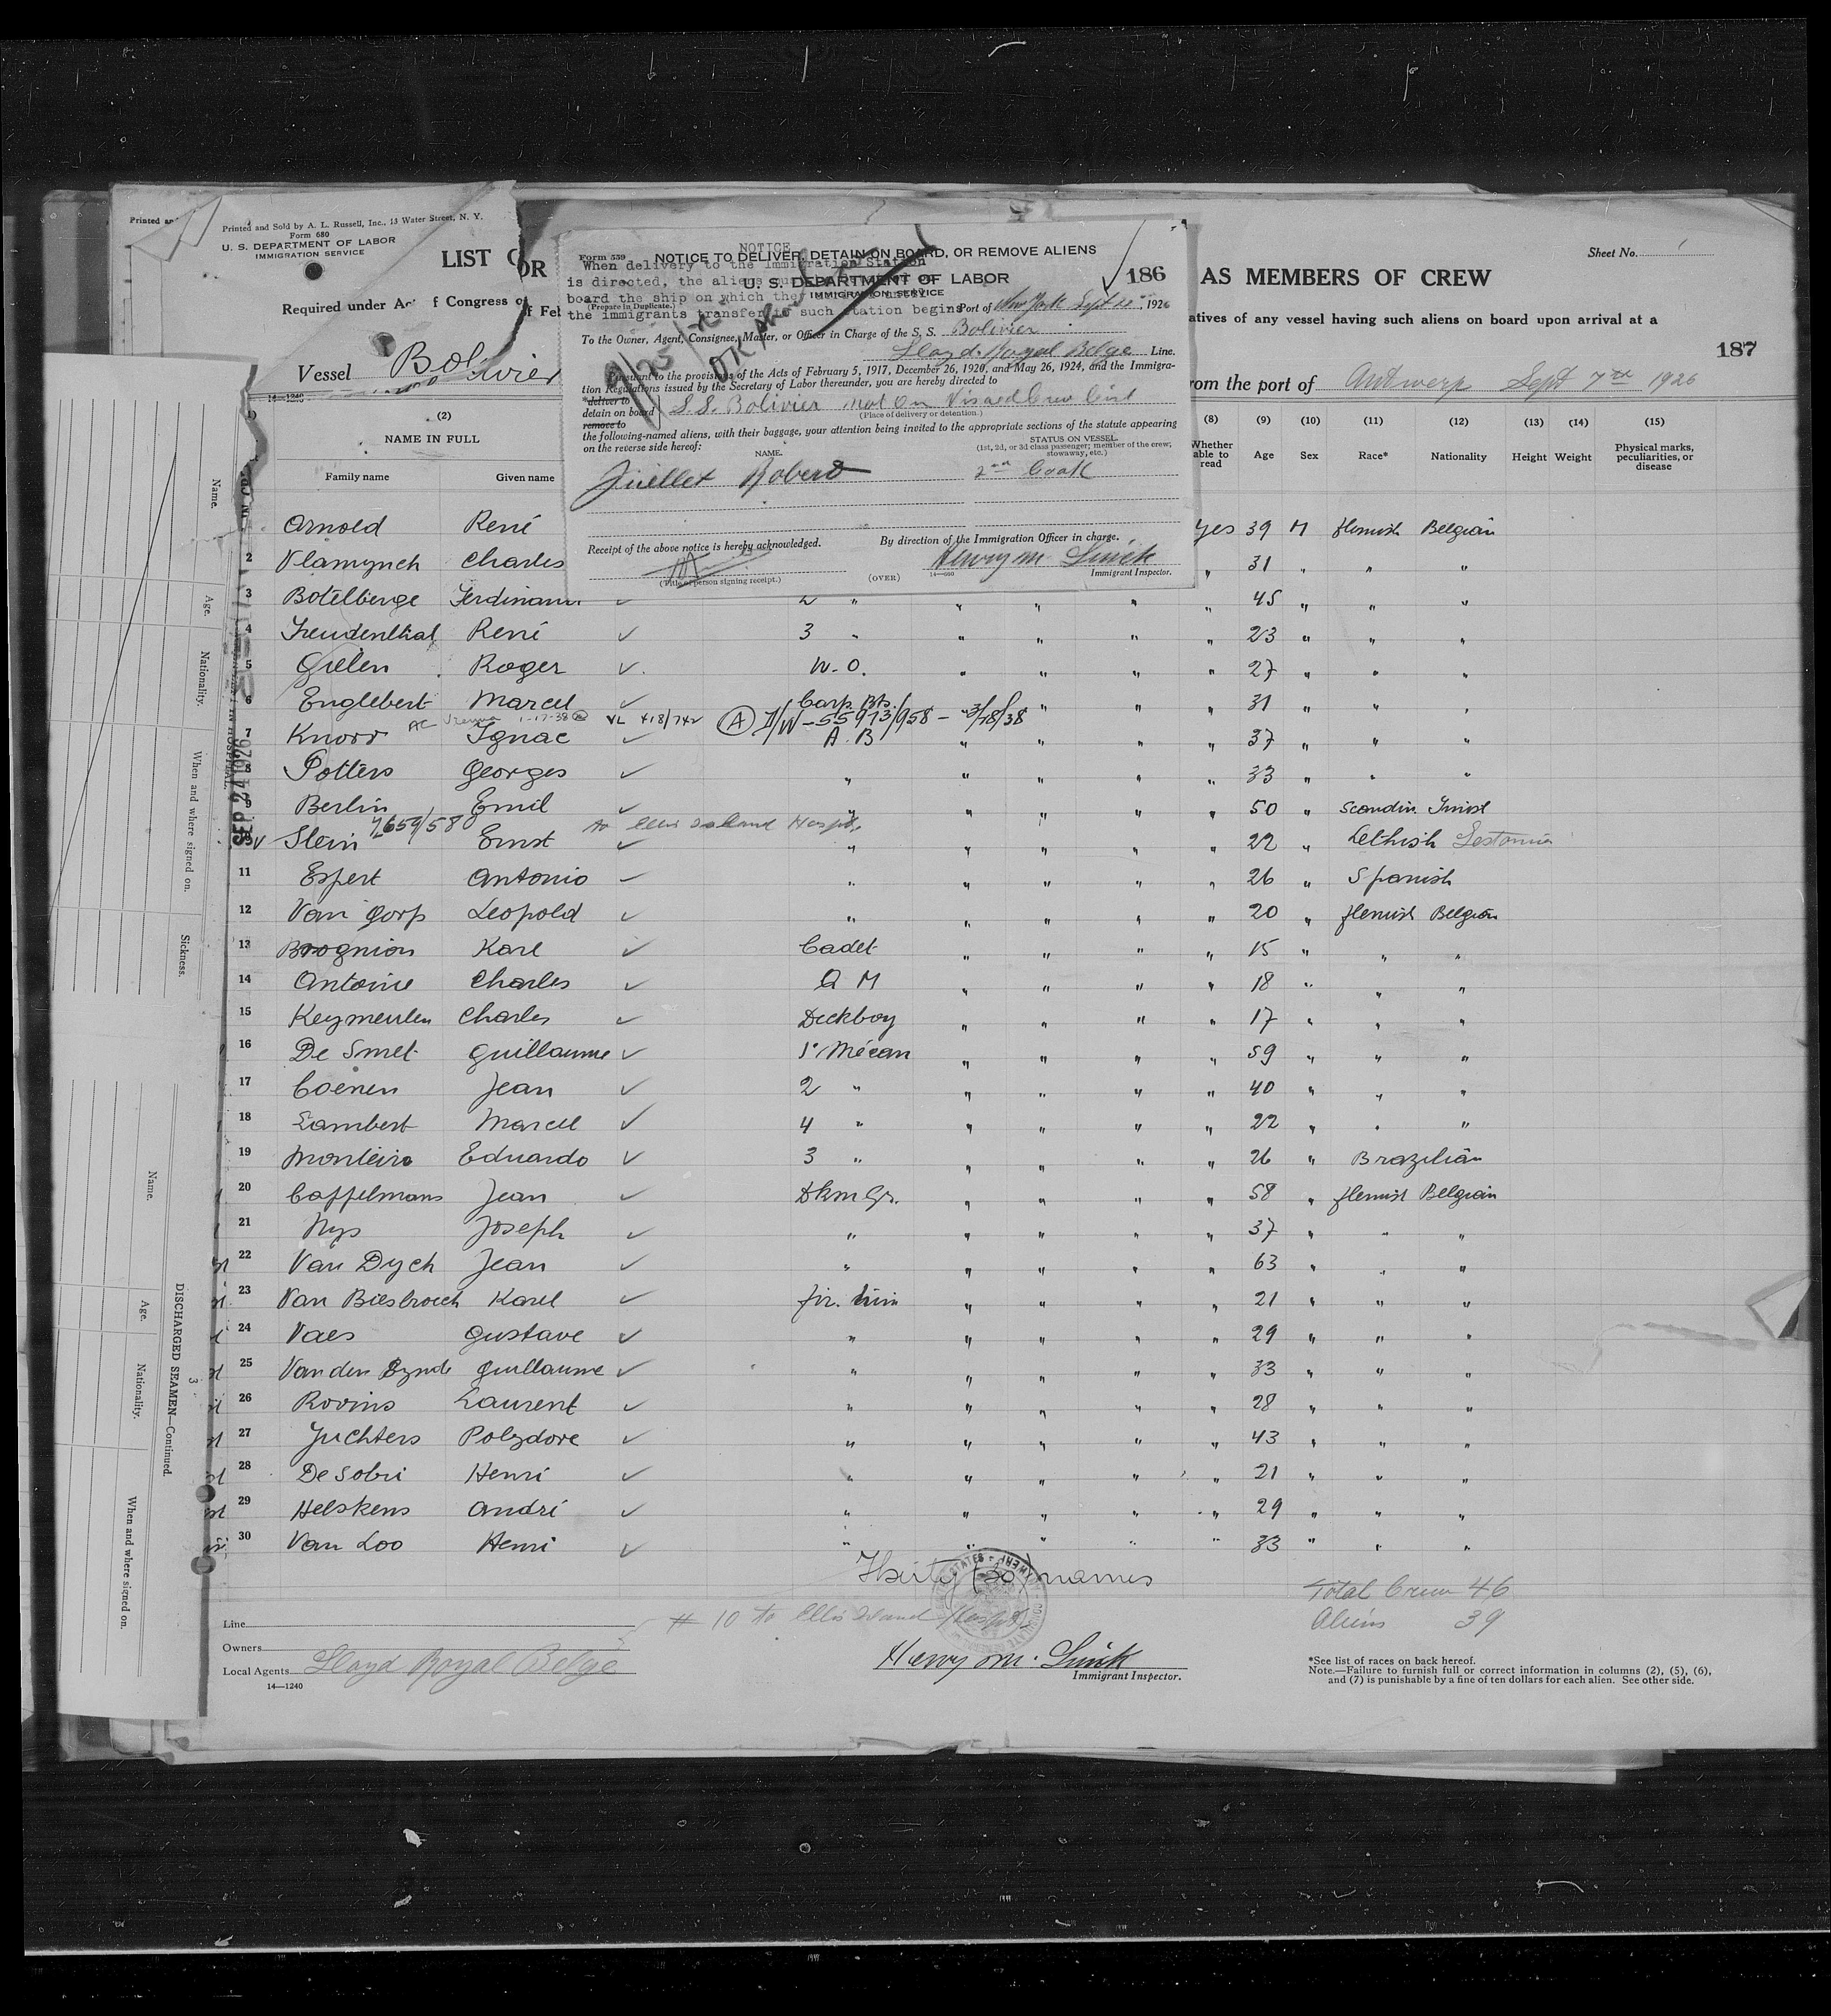 Printed and Sold by A. L. Russell, Inc., 13 Water Street, N. Y.
Form 680
U. S. DEPARTMENT OF LABOR
IMMIGRATION SERVICE
LIST O
OR
AS MEMBERS OF CREW
Sheet No.
Required under Ac f Congress of f Feb
atives of any vessel having such aliens on board upon arrival at a
187
Vessel Bolivier
rom the port of Antwerp Sept 7th 1926
14—1240
NOTICE
When delivery to the Immigration Station
is directed, the aliens
board the ship on which they
the immigrants transfer to such station begins
Form 559
NOTICE TO DELIVER, DETAIN ON BOARD, OR REMOVE ALIENS
U. S. DEPARTMENT OF LABOR
IMMIGRATION SERVICE
186
(Prepare in Duplicate.)
Port of New York Sept 22, 1926
To the Owner, Agent, Consignee, Master, or Officer in Charge of the S. S. Bolivier
Lloyd Royal Belge Line.
Pursuant to the provisions of the Acts of February 5, 1917, December 26, 1920, and May 26, 1924, and the Immigra-
tion Regulations issued by the Secretary of Labor thereunder, you are hereby directed to
*deliver to
detain on board S.S. Bolivier not on Visaed Crew List
remove to
(Place of delivery or detention.)
the following-named aliens, with their baggage, your attention being invited to the appropriate sections of the statute appearing
on the reverse side hereof:
NAME.
STATUS ON VESSEL.
(1st, 2d, or 3d class passenger; member of the crew; stowaway, etc.)
Robert 2nd Cook
Receipt of the above notice is hereby acknowledged.
By direction of the Immigration Officer in charge.
(Title of person signing receipt.)
(OVER)
14—660
Immigrant Inspector.
(2) (8) (9) (10) (11) (12) (13) (14) (15)
NAME IN FULL
Family name Given name
Whether able to read Age Sex Race* Nationality Height Weight Physical marks, peculiarities, or disease
Arnold René Yes 39 M flemish Belgian
2 Vlamynch Charles " 31 " " "
3 Botelberge Ferdinann 2 " " " " " 45 " " "
4 Freudenthal René 3 " " " " " 23 " " "
5 Gielen Roger W. O. " " " " 27 " " "
6 Englebert Marcel Carp. Bts. " " " " 31 " " "
1-17-38 VL 418/742 (A) I/W-55973/958 - 3/18/38
7 Knorr Ignac A. B " " " " 37 " " "
8 Potters Georges " " " " " 33 " " "
9 Berlin Emil " " " " " 50 " Scandin.
7659/580 to Ellis Island Hospt.
Stein Ernst " " " " " 22 " Lethish
11 Espert Antonio " " " " " 26 " Spanish
12 Van Gorp Leopold " " " " " 20 " flemish Belgian
13 Brognion Karl Cadet " " " " 15 " " "
14 Antoine Charles Q M " " " " 18 " " "
15 Keymeulen Charles Deckboy " " " " 17 " " "
16 De Smet Guillaume 1r Mécan " " " " 59 " " "
17 Coenen Jean 2 " " " " " 40 " " "
18 Lambert Marcel 4 " " " " " 22 " " "
19 Monteiro Eduardo 3 " " " " " 26 " Brazilian
20 Coppelmans Jean Dkm Gr. " " " " 58 " flemish Belgian
21 Nys Joseph " " " " " 37 " " "
22 Van Dych Jean " " " " " 63 " " "
23 Van Biesbroeck Karel " " " " 21 " " "
24 Vaes Gustave " " " " " 29 " " "
25 Van den Eynde Guillaume " " " " " 33 " " "
26 Rovins Laurent " " " " " 28 " " "
27 Juchters Polydore " " " " " 43 " " "
28 De Sobri Henri " " " " " 21 " " "
29 Helskens André " " " " " 29 " " "
30 Van Loo Henri " " " " " 33 " " "
Thirty (30) names
Total Crew 46
Aliens 39
# 10 to Ellis Island Hospt.
Line
Owners
Local Agents Lloyd Royal Belge
14—1240
Immigrant Inspector.
*See list of races on back hereof.
Note.—Failure to furnish full or correct information in columns (2), (5), (6),
and (7) is punishable by a fine of ten dollars for each alien. See other side.
SEP 24 1926
Name.
Age.
Nationality.
When and where signed on.
Sickness.
DISCHARGED SEAMEN—Continued.
3
Name.
Age.
Nationality.
When and where signed on.